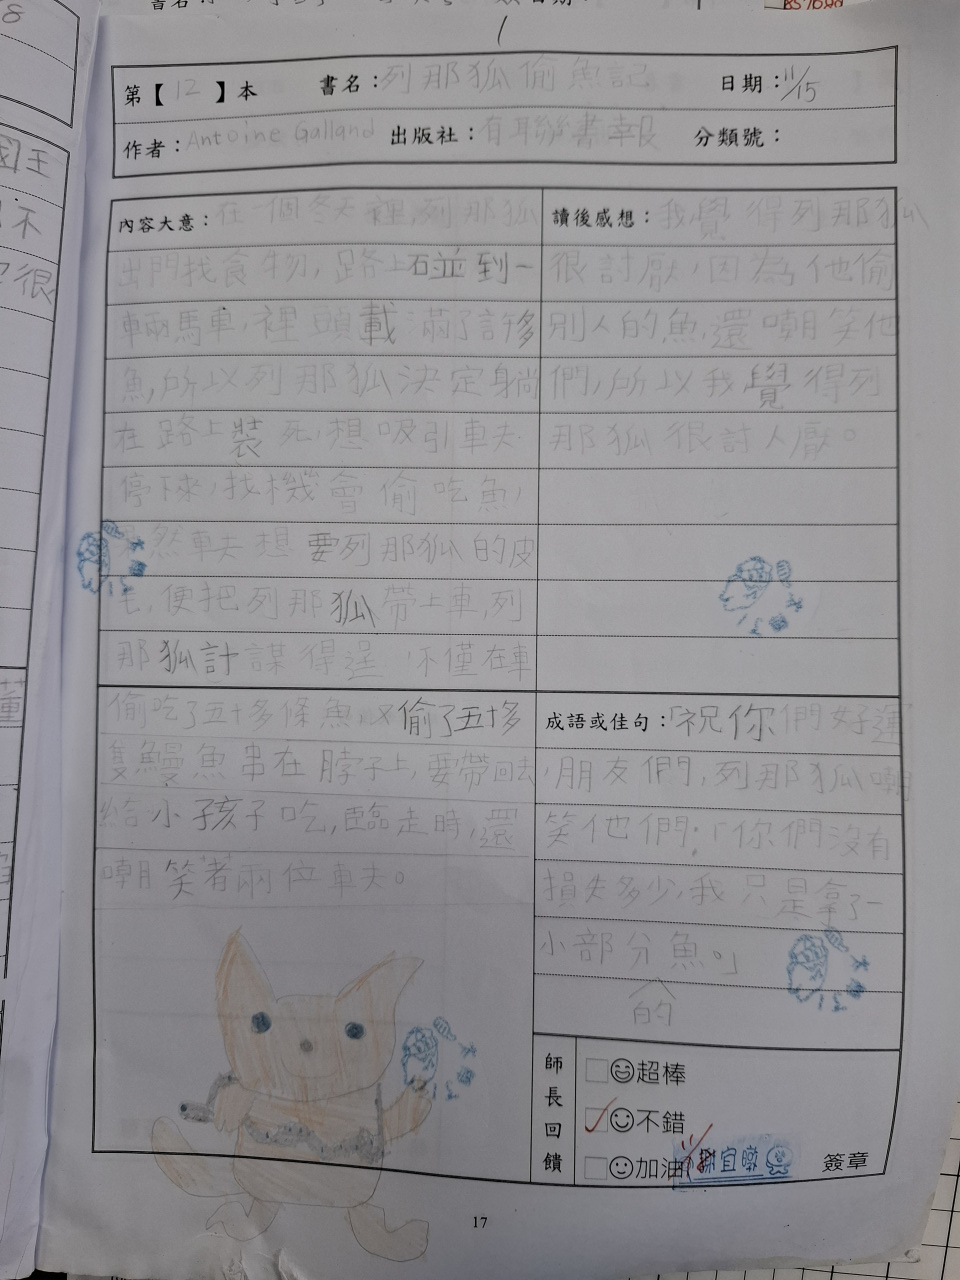 第【12】本 書名：列那狐偷魚記 日期：11/15
作者：Antoine Galland 出版社：有聯書報 分類號：
內容大意：在一個冬天裡,列那狐
出門找食物，路上碰到一
輛馬車，裡頭載滿了許多
魚,所以列那狐決定躺
在路上裝死,想吸引車夫
停下來，找機會偷吃魚，
果然車夫想要列那狐的皮
毛,便把列那狐帶上車,列
那狐計謀得逞,不僅在車
偷吃了五十多條魚,又偷了五十多
隻鰻魚串在脖子上,要帶回去
給小孩子吃,臨走時,還
嘲笑著兩位車夫。
讀後感想：我覺得列那狐
很討厭,因為他偷
別人的魚,還嘲笑他
們,所以我覺得列
那狐很討人厭。
成語或佳句：「祝你們好運
,朋友們,列那狐嘲
笑他們：「你們沒有
損失多少,我只是拿了一
小部分魚。」
的
師長回饋
超棒
不錯
加油
11/
簽章
17